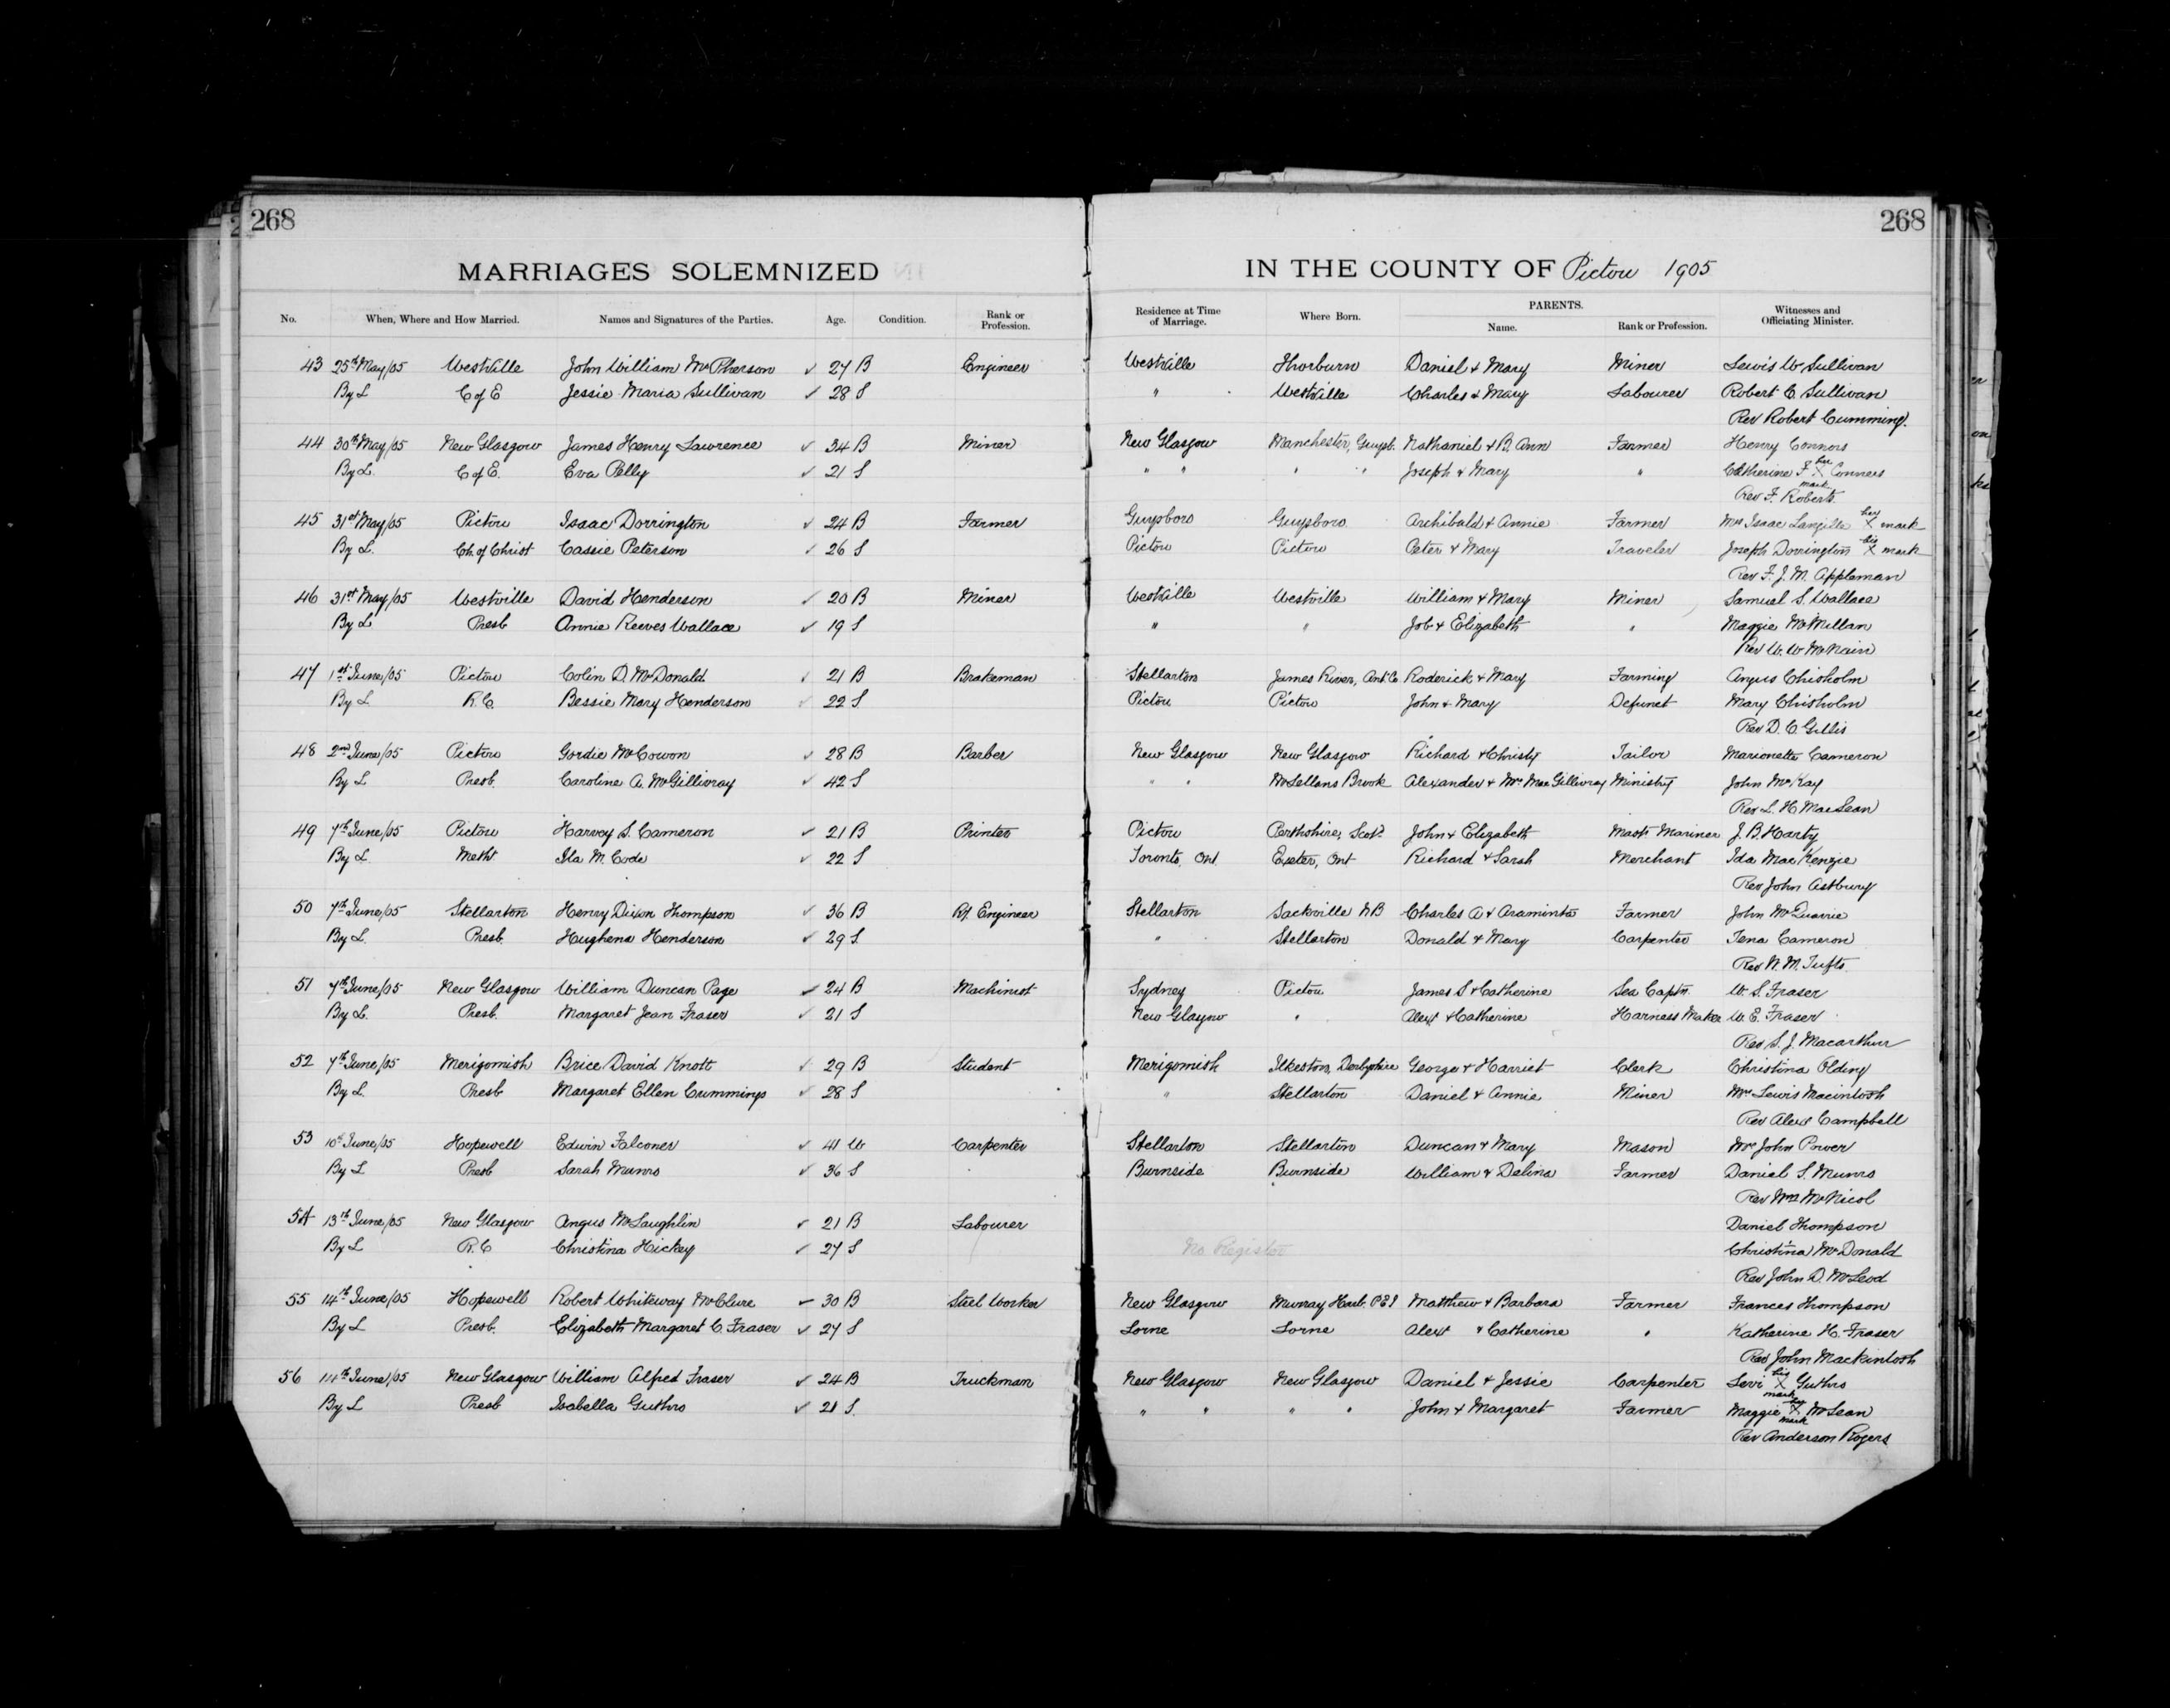 268
268
MARRIAGES SOLEMNIZED IN THE COUNTY OF Pictou 1905
No. When, Where and How Married. Names and Signatures of the Parties. Age. Condition. Rank or Profession. Residence at Time of Marriage. Where Born. PARENTS. Name. Rank or Profession. Witnesses and Officiating Minister.
43 25th May/05 Westville John William McPherson ✓ 27 B Engineer Westville Thorburn Daniel + Mary Miner Lewis W. Sullivan
By L C of E Jessie Maria Sullivan ✓ 28 S " Westville Charles + Mary Labourer Robert C. Sullivan
Rev Robert Cumming.
44 30th May/05 New Glasgow James Henry Lawrence ✓ 34 B Miner New Glasgow Manchester, Guysb. Nathaniel + B. Ann Farmer Henry Connors
By L. C of E. Eva Pelly ✓ 21 S " " " " Joseph + Mary " Catherine F. her X mark Conners
Rev F. Roberts
45 31st May/05 Pictou Isaac Dorrington ✓ 24 B Farmer Guysboro Guysboro Archibald + Annie Farmer Mrs Isaac Langille her X mark
By L. Ch. of Christ Cassie Peterson ✓ 26 S Pictou Pictou Peter + Mary Traveler Joseph Dorrington his X mark
Rev F. J. M. Appleman
46 31st May/05 Westville David Henderson ✓ 20 B Miner Westville Westville William + Mary Miner Samuel S. Wallace
By L Presb Annie Reeves Wallace ✓ 19 S " " Job + Elizabeth " Maggie McMillan
Rev W. W. McNairn
47 1st June/05 Pictou Colin D. McDonald ✓ 21 B Brakeman Stellarton James River, Ant Co Roderick + Mary Farming Angus Chisholm
By L R.C. Bessie Mary Henderson ✓ 22 S Pictou Pictou John + Mary Defunct Mary Chisholm
Rev D. C. Gillis
48 2nd June/05 Pictou Gordie McCowon ✓ 28 B Barber New Glasgow New Glasgow Richard + Christy Tailor Marionette Cameron
By L Presb. Caroline A. McGillivray ✓ 42 S " " McLellans Brook Alexander + Mrs MacGillivray Ministry John McKay
Rev L. H. MacLean
49 7th June/05 Pictou Harvey S. Cameron ✓ 21 B Printer Pictou Perthshire, Scot. John + Elizabeth Mastr Mariner J. B. Harty
By L. Meth Ila M. Code ✓ 22 S Toronto, Ont. Exeter, Ont Richard + Sarah Merchant Ida MacKenzie
Rev John Astbury
50 7th June/05 Stellarton Henry Dixon Thompson ✓ 36 B Ry. Engineer Stellarton Sackville NB Charles A + Araminta Farmer John McQuarrie
By L. Presb. Hughena Henderson ✓ 29 S " Stellarton Donald + Mary Carpenter Tena Cameron
Rev W. M. Tufts
51 7th June/05 New Glasgow William Duncan Page ✓ 24 B Machinist Sydney Pictou James S + Catherine Sea Captn. W. S. Fraser
By L. Presb. Margaret Jean Fraser ✓ 21 S New Glasgow " Alexr + Catherine Harness Maker W. E. Fraser
Rev S. J. Macarthur
52 7th June/05 Merigomish Brice David Knott ✓ 29 B Student Merigomish Ilkeston, Derbyshire George + Harriet Clerk Christina Olding
By L. Presb Margaret Ellen Crummings ✓ 28 S " Stellarton Daniel + Annie Miner Mrs Lewis Macintosh
Rev Alexr Campbell
53 10th June/05 Hopewell Edwin Falconer ✓ 41 W Carpenter Stellarton Stellarton Duncan + Mary Mason Mrs John Power
By L Presb Sarah Munro ✓ 36 S Burnside Burnside William + Delina Farmer Daniel S. Munro
Rev Wm McNicol
54 13th June/05 New Glasgow Angus McLaughlin ✓ 21 B Labourer Daniel Thompson
By L R.C Christina Hickey ✓ 27 S No Register Christina McDonald
Rev John D. McLeod
55 14th June/05 Hopewell Robert Whiteway McClure ✓ 30 B Steel Worker New Glasgow Murray Harb. P.E.I Matthew + Barbara Farmer Frances Thompson
By L Presb. Elizabeth Margaret C. Fraser ✓ 27 S Lorne Lorne Alexr + Catherine " Katherine H. Fraser
Rev John Mackintosh
56 14th June/05 New Glasgow William Alfred Fraser ✓ 24 B Truckman New Glasgow New Glasgow Daniel + Jessie Carpenter Levi his X mark Guthro
By L Presb Isabella Guthro ✓ 21 S. " " " " John + Margaret Farmer Maggie her X mark McLean
Rev Anderson Rogers